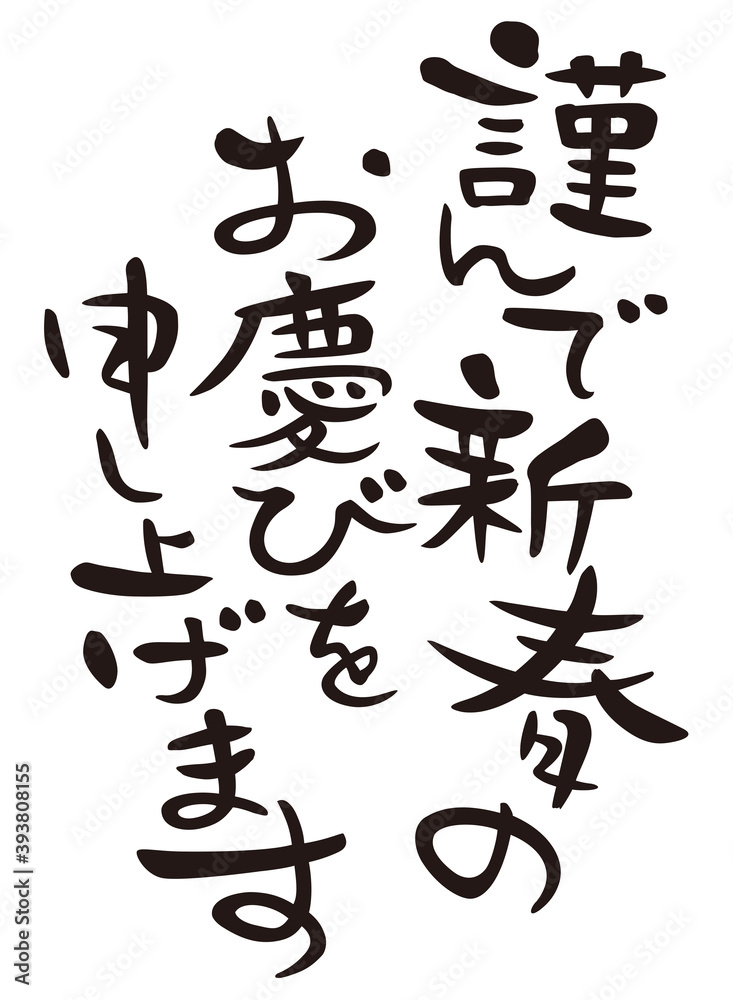 謹んで新春の
お慶びを
申し上げます
Adobe Stock | #393808155